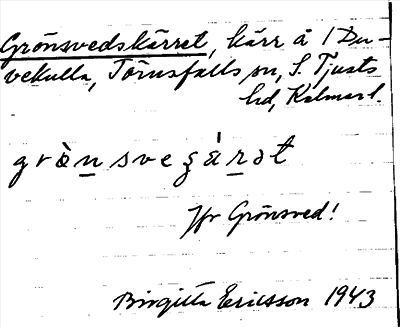 Grönsvedskärret, kärr å 1 Du-
vekulla, Törnsfalls sn, S. Tjusts
hd, Kalmar l.
grò̱nsveʂá̱rət
Jfr Grönsved!
Birgitta Ericsson 1943